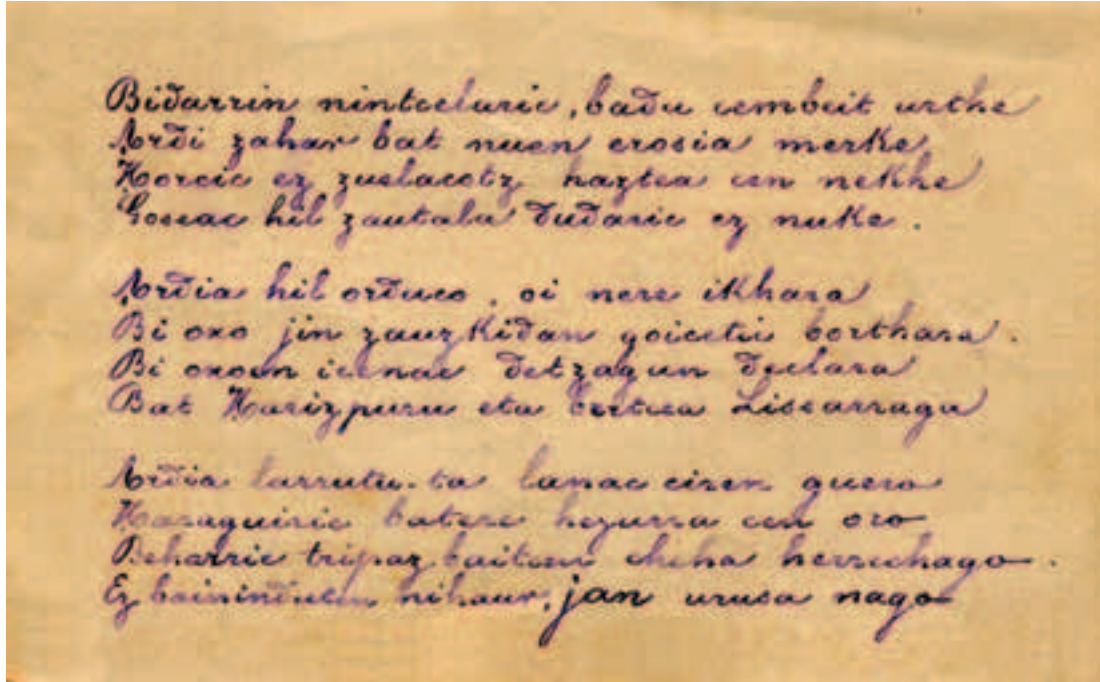 Bidarrin nintcelaric, badu cembeit urthe
Ardi zahar bat nuen erosia merke
Horcic ez zuelacotz haztea cen nekhe
Goseac hil zautala dudaric ez nuke.
Ardia hil orduco, oi nere ikhara
Bi oxo jin zauzkidan goicetic borthara.
Bi oxoen icenac detzagun declara
Bat Harizpuru eta bertcea Lissarraga
Ardia larrutu ta lanac ciren guero
Haraguiric batere hezurra cen oro
Beharric tripaz baitcen herrechago.
Ez bainindulen nihaur, jan urusa nago